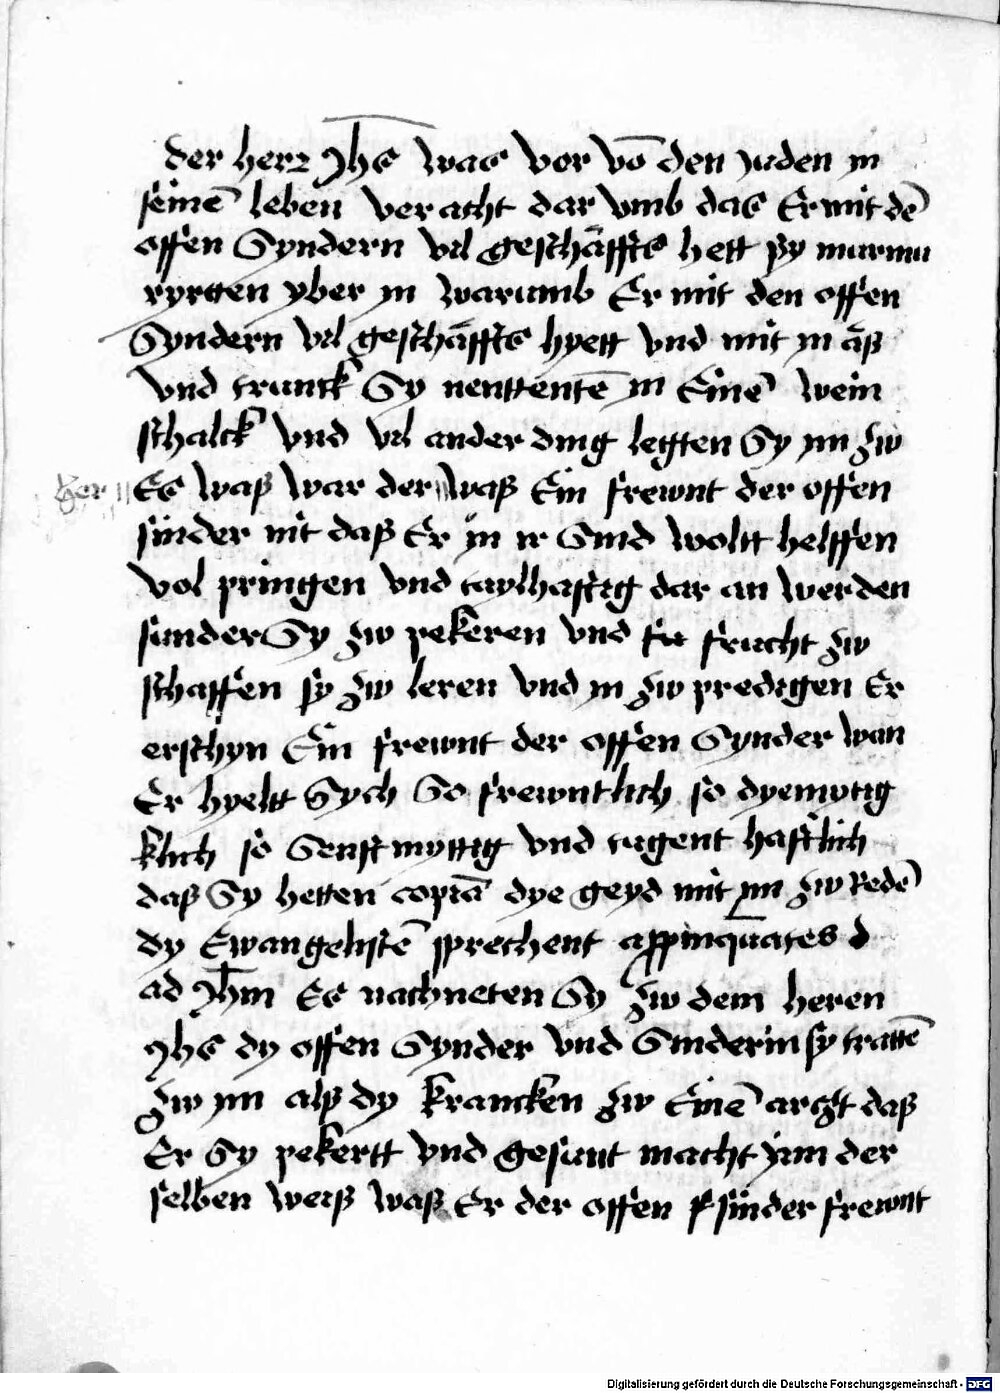 der herr Jhs was vor võ den juden in
seinē leben veracht dar vmb das Er mit dē
offen Syndern vil geschäffts hett sy murmu
ryrtten yber jn warumb Er mit den offen
Syndern vil geschäffts hyett vnd mit jn äß
vnd tranck Sy nenttentē jn Einē wein
schalck vnd vil ander ding legten Sy jm zw
her
Es waß war der waß Ein frewnt der offen
sünder nit daß Er jn ir Sünd woltt helffen
vol pringen vnd taylhafftig dar an werden
sunder Sy zw pekeren vnd frucht zw
schaffen sy zw leren vnd jn zw predigen Er
erschyn Ein frewnt der offen Synder wan
Er hyeltt Sych So frewntlich so dyemutig
klich so Senftmyttig vnd tugent hafftlich
daß Sy hetten copiā dye mit jm zw Redē
dy Ewangelistē sprechent appinquātes
ad Jhm Es nachneten Sy zw dem heren
Jhs dy offen Synder vnd Sünderin sy trattē
zw jm alß dy krancken zw Einē arczt daß
Er Sy pekertt vnd gesunt macht jnn der
selben weiß waß Er der offen sünder frewnt
Digitalisierung gefördert durch die Deutsche Forschungsgemeinschaft - DFG